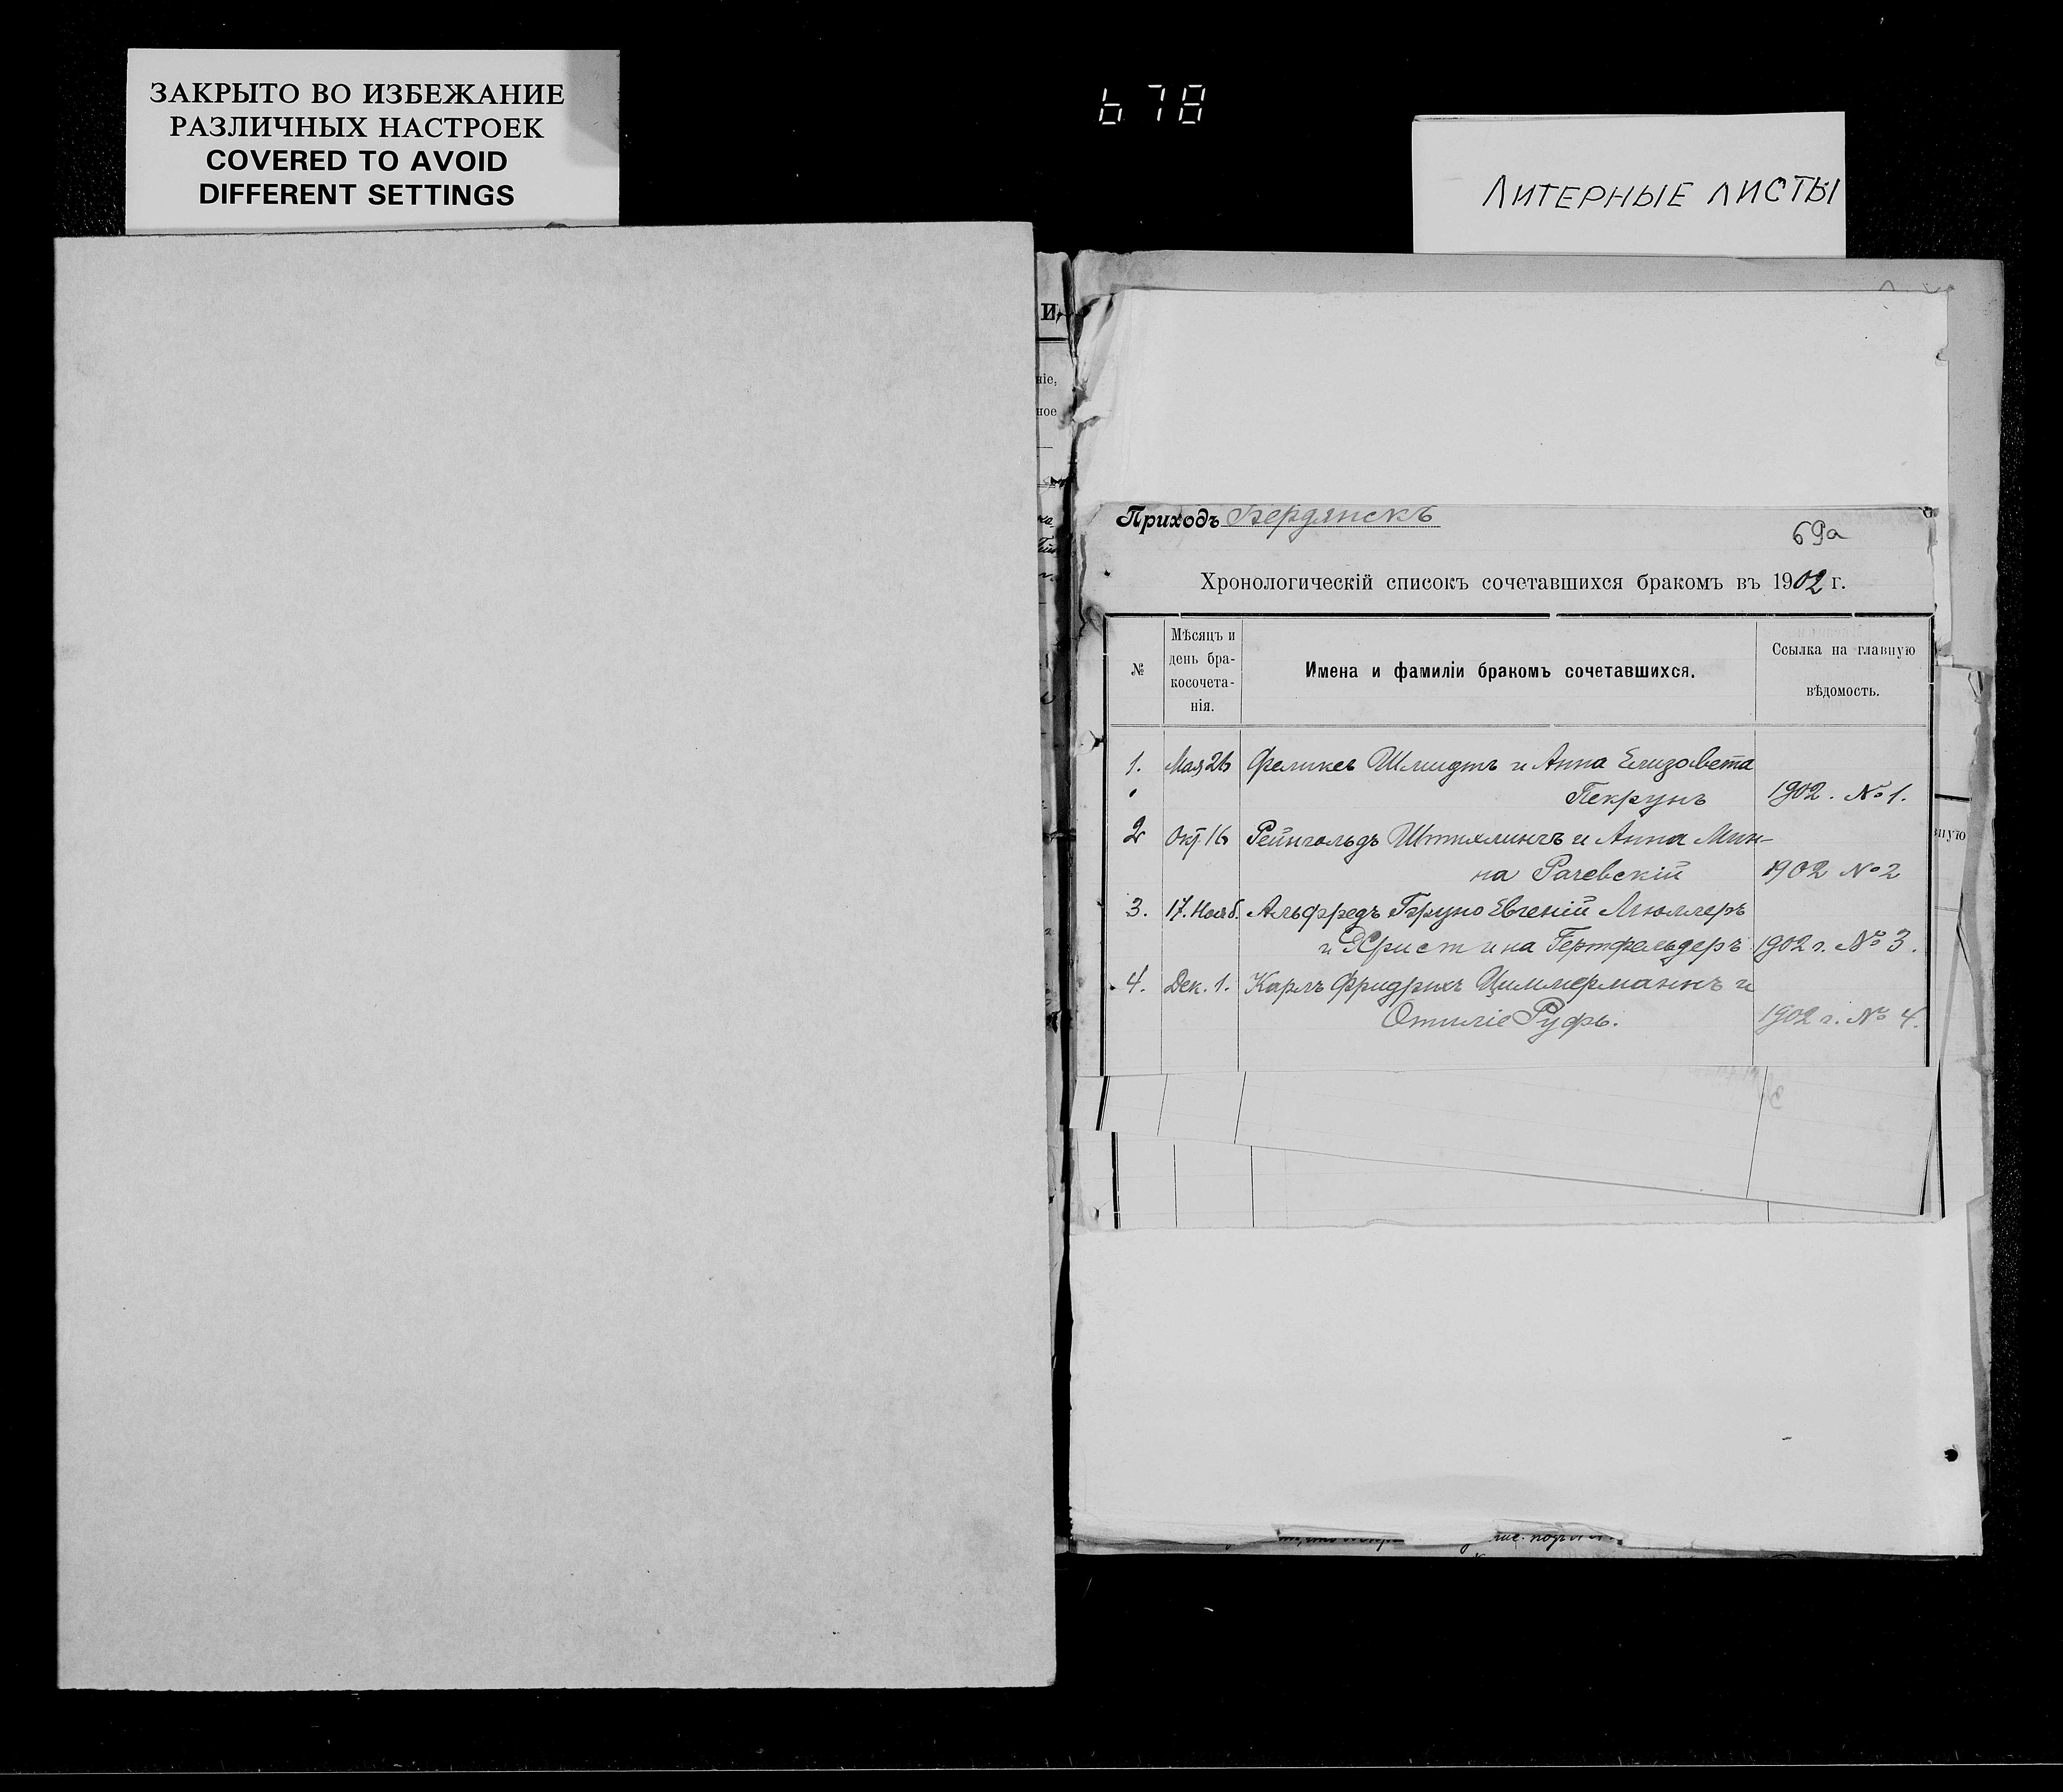 ЗАКРЫТО ВО ИЗБЕЖАНИЕ
РАЗЛИЧНЫХ НАСТРОЕК
COVERED TO AVOID
DIFFERENT SETTINGS
678
ЛИТЕРНЫЕ ЛИСТЫ
Приходъ Бердянскъ
69а
Хронологическій списокъ сочетавшихся бракомъ въ 1902 г.
№
Мѣсяцъ и
день бра-
косочета-
нія.
Имена и фамиліи бракомъ сочетавшихся.
Ссылка на главную
вѣдомость.
1. Мая 26 Феликсъ Шмидтъ и Анна Елизовета
Пекрунъ 1902. № 1.
2 Окт. 16 Рейнгольдъ Штихлингъ и Анна Мин-
на Рачевскій 1902 № 2
3. 17. Нояб. Альфредъ Бруно Евгеній Мюллеръ
и Христина Гертфельдеръ 1902 г. № 3.
4. Дек. 1. Карлъ Фридрихъ Циммерманнъ и
Отиліе Руфъ. 1902 г. № 4.